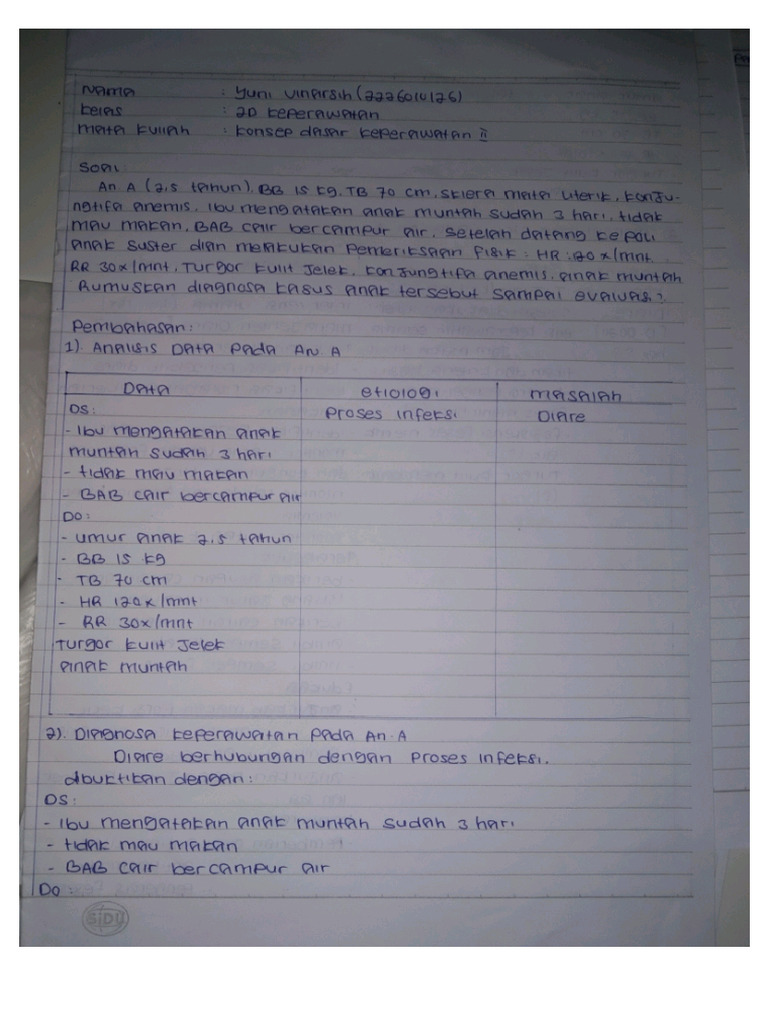 Nama : Yuni Vinarsih (2226010126)
Kelas : 2D Keperawatan
Mata Kuliah : Konsep dasar Keperawatan II
Soal
An. A (2,5 tahun). BB 15 kg. TB 70 cm. Sklera mata ikterik, Konju-
ngtifa anemis. Ibu mengatakan anak muntah sudah 3 hari, tidak
mau makan. BAB cair bercampur air. Setelah datang ke poli
anak suster dian melakukan Pemeriksaan fisik : HR : 120 x/mnt.
RR 30x/mnt. Turgor kulit Jelek. Konjungtifa anemis. anak muntah
Rumuskan diagnosa kasus anak tersebut sampai evaluasi?
Pembahasan:
1). Analisis Data Pada An A
Data etiologi masalah
DS: Proses infeksi Diare
- Ibu mengatakan anak
muntah sudah 3 hari
- tidak mau makan
- BAB cair bercampur air
DO:
- umur anak 2,5 tahun
- BB 15 kg
- TB 70 cm
- HR 120x/mnt
- RR 30x/mnt
Turgor kulit Jelek
anak muntah
2). Diagnosa Keperawatan Pada An. A
Diare berhubungan dengan Proses infeksi.
dbuktikan dengan:
DS:
- Ibu mengatakan anak muntah sudah 3 hari
- tidak mau makan
- BAB cair bercampur air
DO:
SiDU